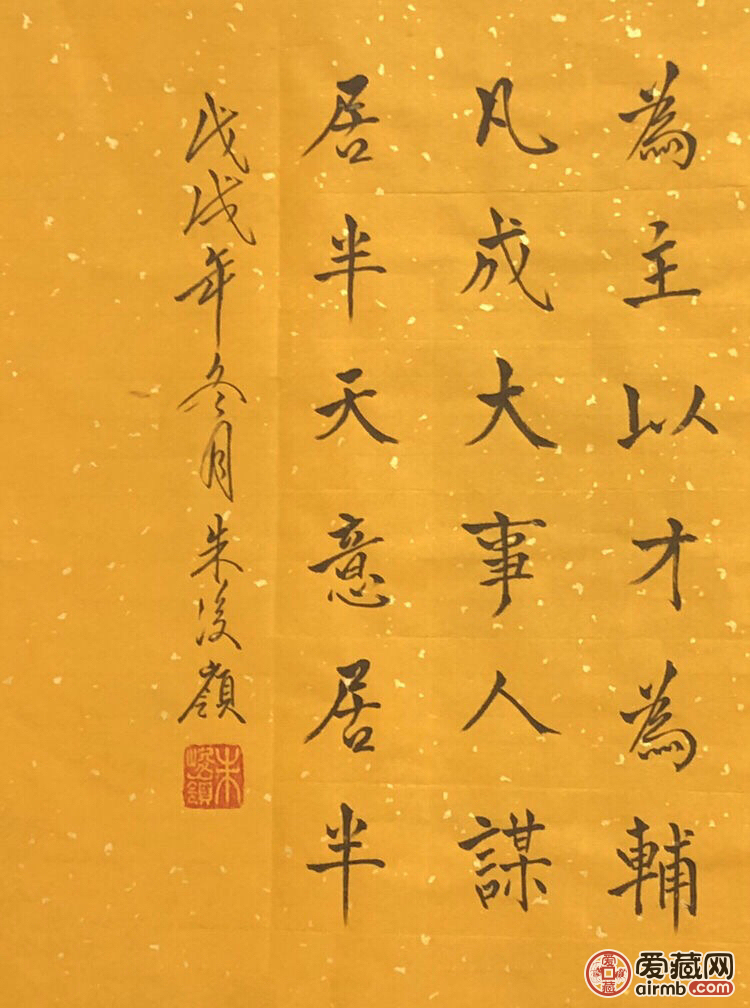 為主以才為輔
凡成大事人謀
居半天意居半
戊戌年冬月朱浚嶺
朱峻嶺
爱藏网
airmb.com